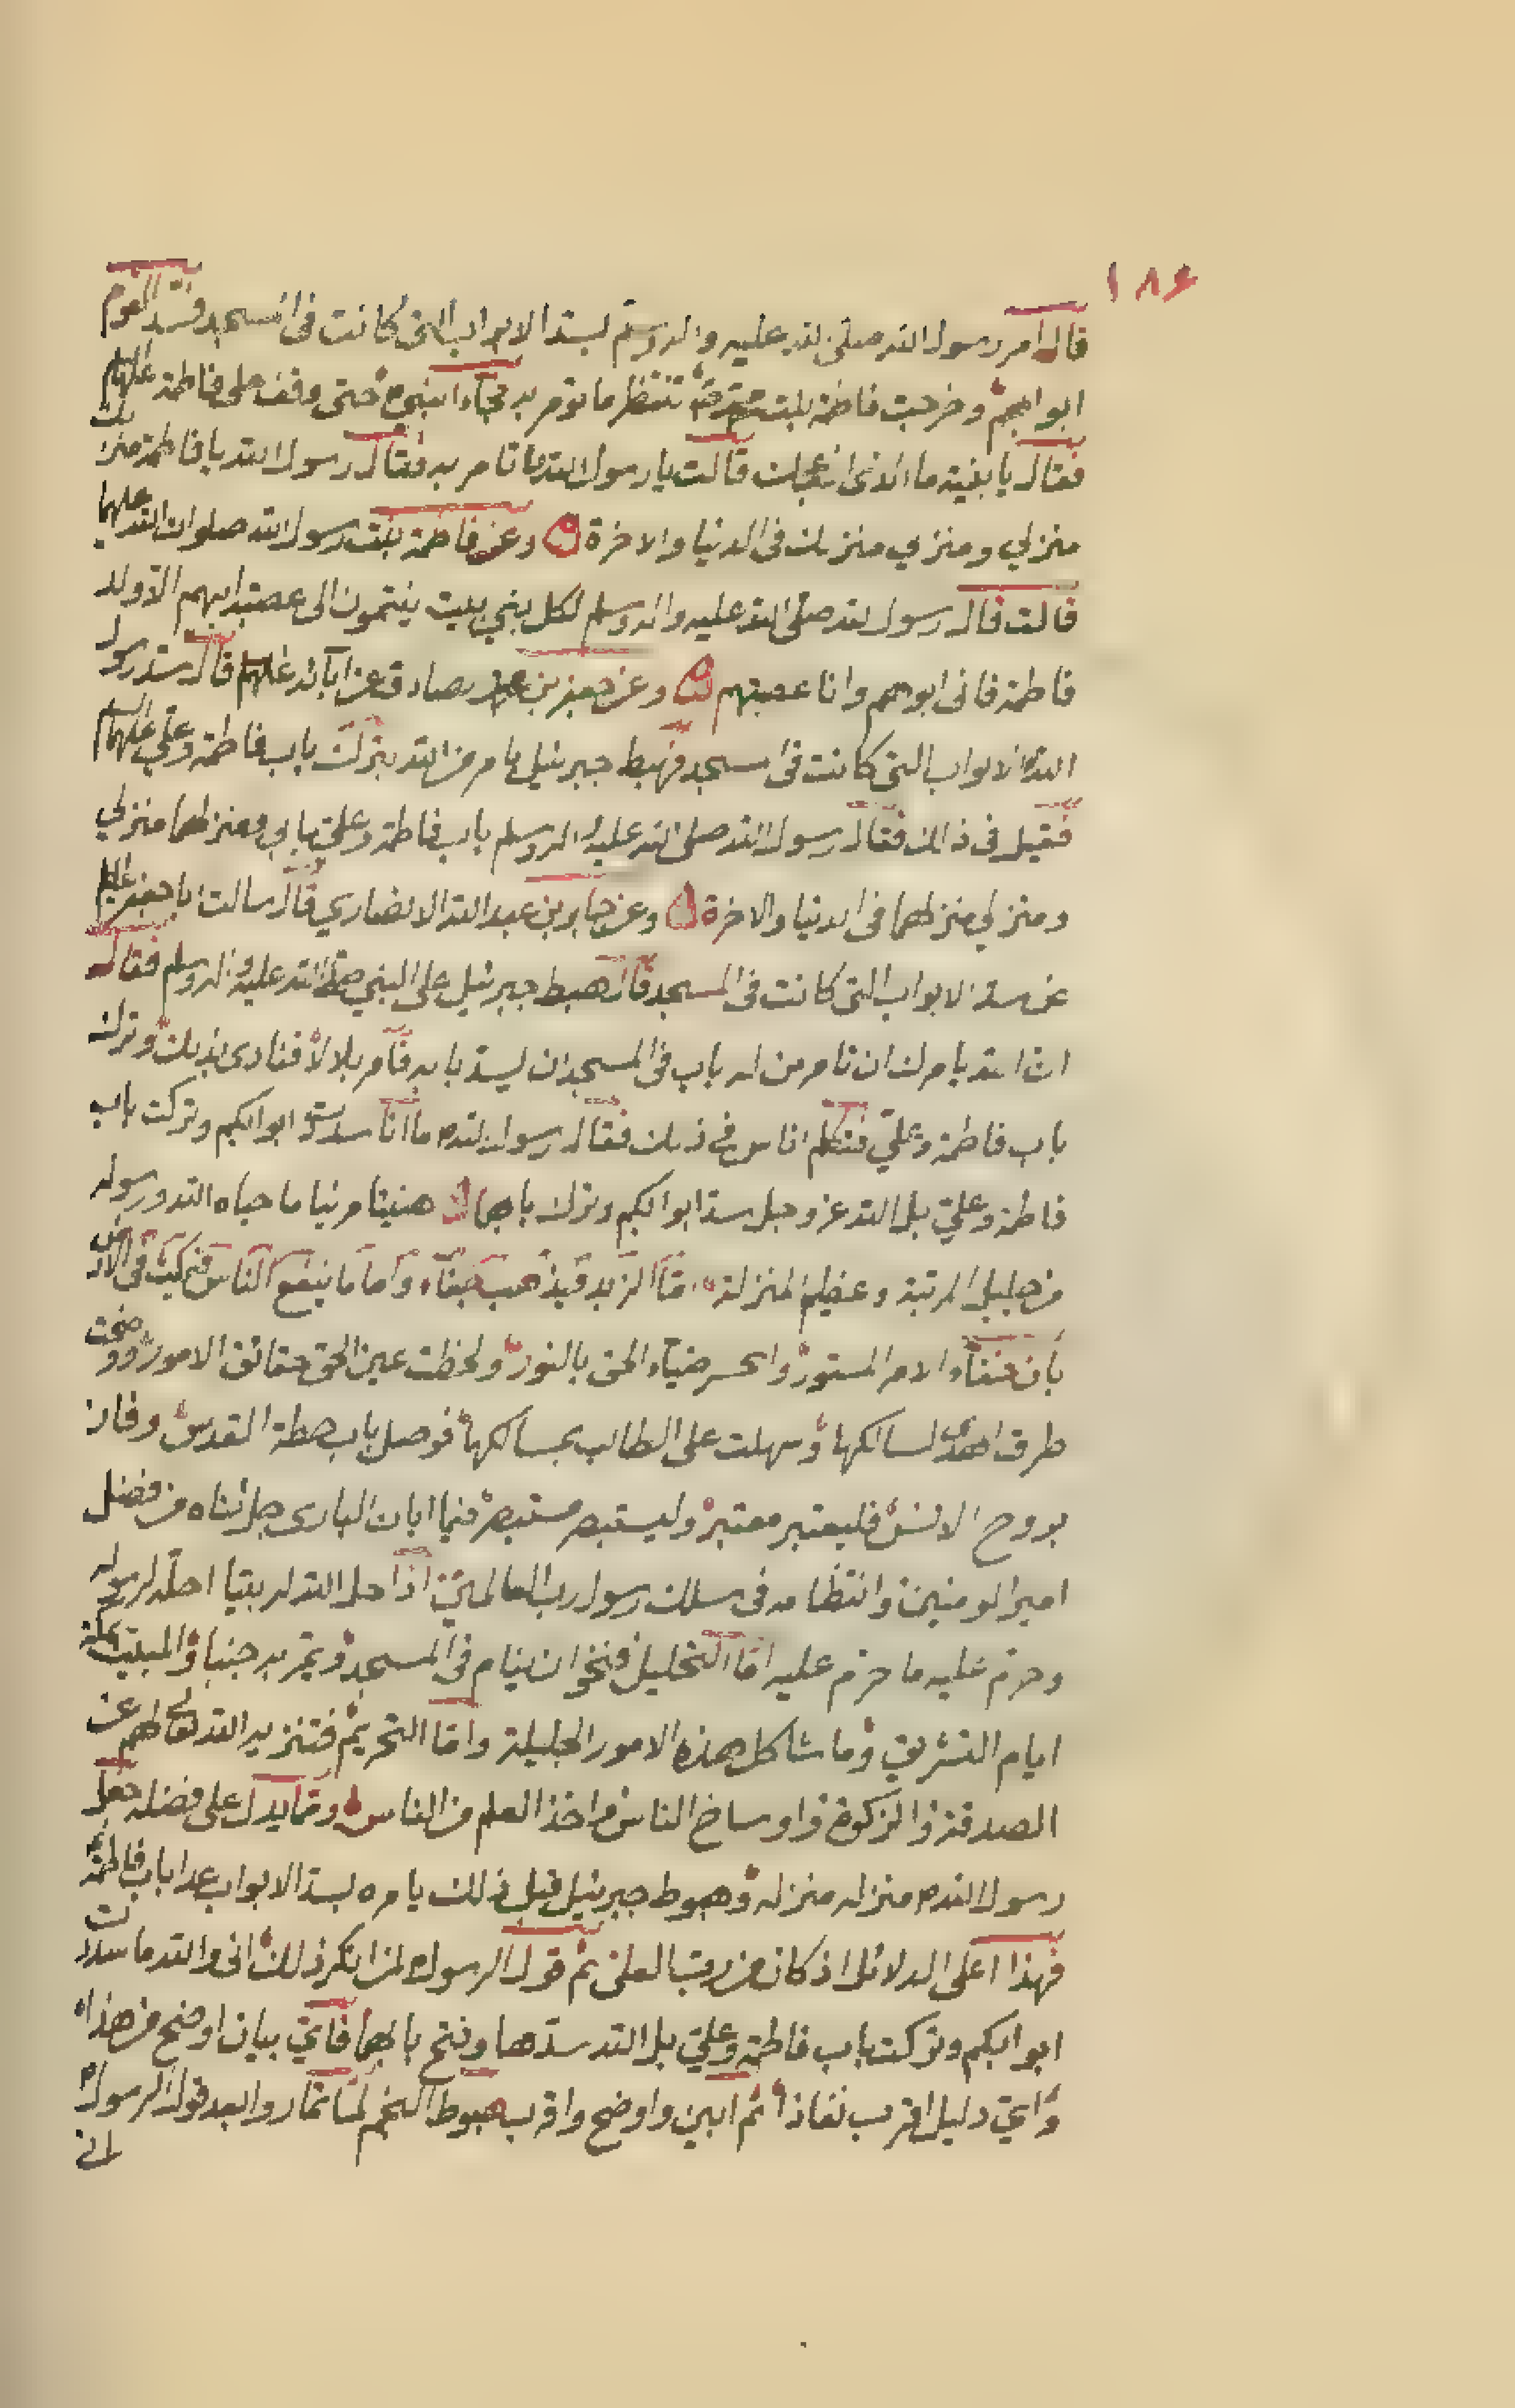 ١٨٤
قال امر رسول الله صلى الله عليه واله وسلم بسد الابواب التى كانت فى المسجد فسد القوم
ابوابهم وخرجت فاطمة بنت محمد تنتظر ما تومر به فجاء النبي حتى وقف على فاطمة عليهما السلم
فقال يا بنية ما الذى قالت يا رسول الله ما تامر به فقال رسول الله يا فاطمة منزلك
منزلي ومنزلي منزلك فى الدنيا والاخرة وعن فاطمة بنت رسول الله صلوات الله عليهما
قالت قال رسول الله صلى الله عليه واله وسلم لكل بني بيت ينتمون الى عصبة ابيهم الا ولد
فاطمة فانى ابوهم وانا عصبتهم وعن جعفر بن محمد الصادق عن آبائه عليهم قال سد رسول
الله الابواب التى كانت فى المسجد فهبط جبرئيل بامر من الله بترك باب فاطمة وعلي عليهما السلم
فقيل فى ذالك فقال رسول الله صلى الله عليه واله وسلم باب فاطمة وعلي بابي ومنزلهما منزلي
ومنزلي منزلهما فى الدنيا والاخرة وعن جابر بن عبد الله الانصاري قال سالت ابا جعفر عليه السلم
عن سد الابواب التى كانت فى المسجد قال هبط جبرئيل على النبي صلى الله عليه واله وسلم فقال
ان الله يامرك ان تامر من له باب فى المسجد ان يسد بابه فامر بلالا فنادى بذلك وترك
باب فاطمة وعلي فتكلم الناس فى ذلك فقال رسول الله ما انا سددت ابوابكم وتركت باب
فاطمة وعلي بل الله عز وجل سد ابوابكم وترك بابهما هنيئا مريئا ما حباه الله ورسوله
من جليل المرتبة وعظيم المنزلة فاما الزبد فيذهب جفاء واما ما ينفع الناس فيمكث فى الارض
بان خفاء الامر المستور وانحسر ضياء الحق بالنور ولحظت عين الحق حقائق الامور ووضحت
طرق الهدى لسالكها وسهلت على الطالب بمسالكها فوصل باب حطة القدس وفاز
بروح الانس فليعتبر معتبر وليستبصر مستبصر فيما ابان البارى جل ثناه من فضل
امير المومنين وانتظامه فى سلك رسول رب العالمين اذا حل الله له بيتا احله لرسوله
وحرم عليه ما حرم عليه اما التحليل فنحو ان ينام فى المسجد ويمر به جنبا والمبيت بمكة
ايام التشريق وما شاكل هذه الامور الجليلة واما التحريم فتنزيه الله تعالى لهم عن
الصدقة والزكوة واوساخ الناس واخذ العلم من الناس ومما يدل على فضله جعل
رسول الله منزله منزله وهبوط جبرئيل قبل ذلك يامره بسد الابواب عدا باب فاطمة
فهذا اعلى الدلائل اذ كان من رب العلى ثم قول الرسول لمن انكر ذلك انى والله ما سددت
ابوابكم وتركت باب فاطمة وعلي بل الله سدها وفتح بابهما فاي بيان اوضح من هذا
واي دليل اقرب نفاذا ثم ابين واوضح واقرب هبوط النجم لما تماروا بعد قول الرسول